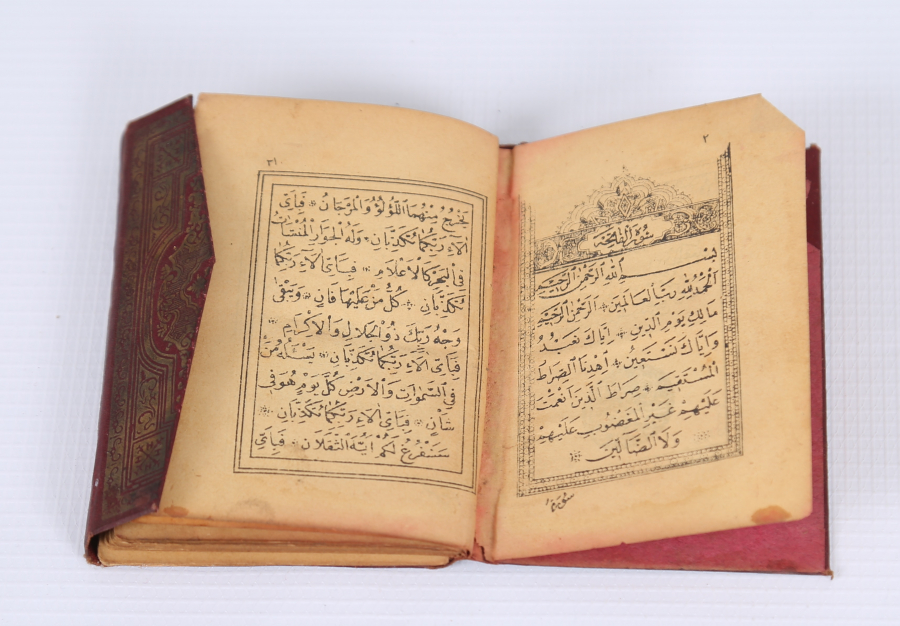 ٢
سُورَةُ الْفَاتِحَة
بِسْمِ اللهِ الرَّحْمٰنِ الرَّحِيمِ
اَلْحَمْدُ لِلّٰهِ رَبِّ الْعَالَمِينَ ۞ اَلرَّحْمٰنِ الرَّحِيمِ
مَالِكِ يَوْمِ الدِّينِ ۞ اِيَّاكَ نَعْبُدُ
وَاِيَّاكَ نَسْتَعِينُ ۞ اِهْدِنَا الصِّرَاطَ
الْمُسْتَقِيمَ ۞ صِرَاطَ الَّذِينَ اَنْعَمْتَ
عَلَيْهِمْ غَيْرِ الْمَغْضُوبِ عَلَيْهِمْ
وَلَا الضَّالِّينَ ۞
سورة
٣١
يَخْرُجُ مِنْهُمَا اللُّؤْلُؤُ وَالْمَرْجَانُ ۞ فَبِاَيِّ
اٰلَاءِ رَبِّكُمَا تُكَذِّبَانِ ۞ وَلَهُ الْجَوَارِ الْمُنْشَاٰتُ
فِي الْبَحْرِ كَالْاَعْلَامِ ۞ فَبِاَيِّ اٰلَاءِ رَبِّكُمَا
تُكَذِّبَانِ ۞ كُلُّ مَنْ عَلَيْهَا فَانٍ ۞ وَيَبْقٰى
وَجْهُ رَبِّكَ ذُو الْجَلَالِ وَالْاِكْرَامِ ۞
فَبِاَيِّ اٰلَاءِ رَبِّكُمَا تُكَذِّبَانِ ۞ يَسْئَلُهُ مَنْ
فِي السَّمٰوَاتِ وَالْاَرْضِ كُلَّ يَوْمٍ هُوَ فِي
شَاْنٍ ۞ فَبِاَيِّ اٰلَاءِ رَبِّكُمَا تُكَذِّبَانِ ۞
سَنَفْرُغُ لَكُمْ اَيُّهَ الثَّقَلَانِ ۞ فَبِاَيِّ